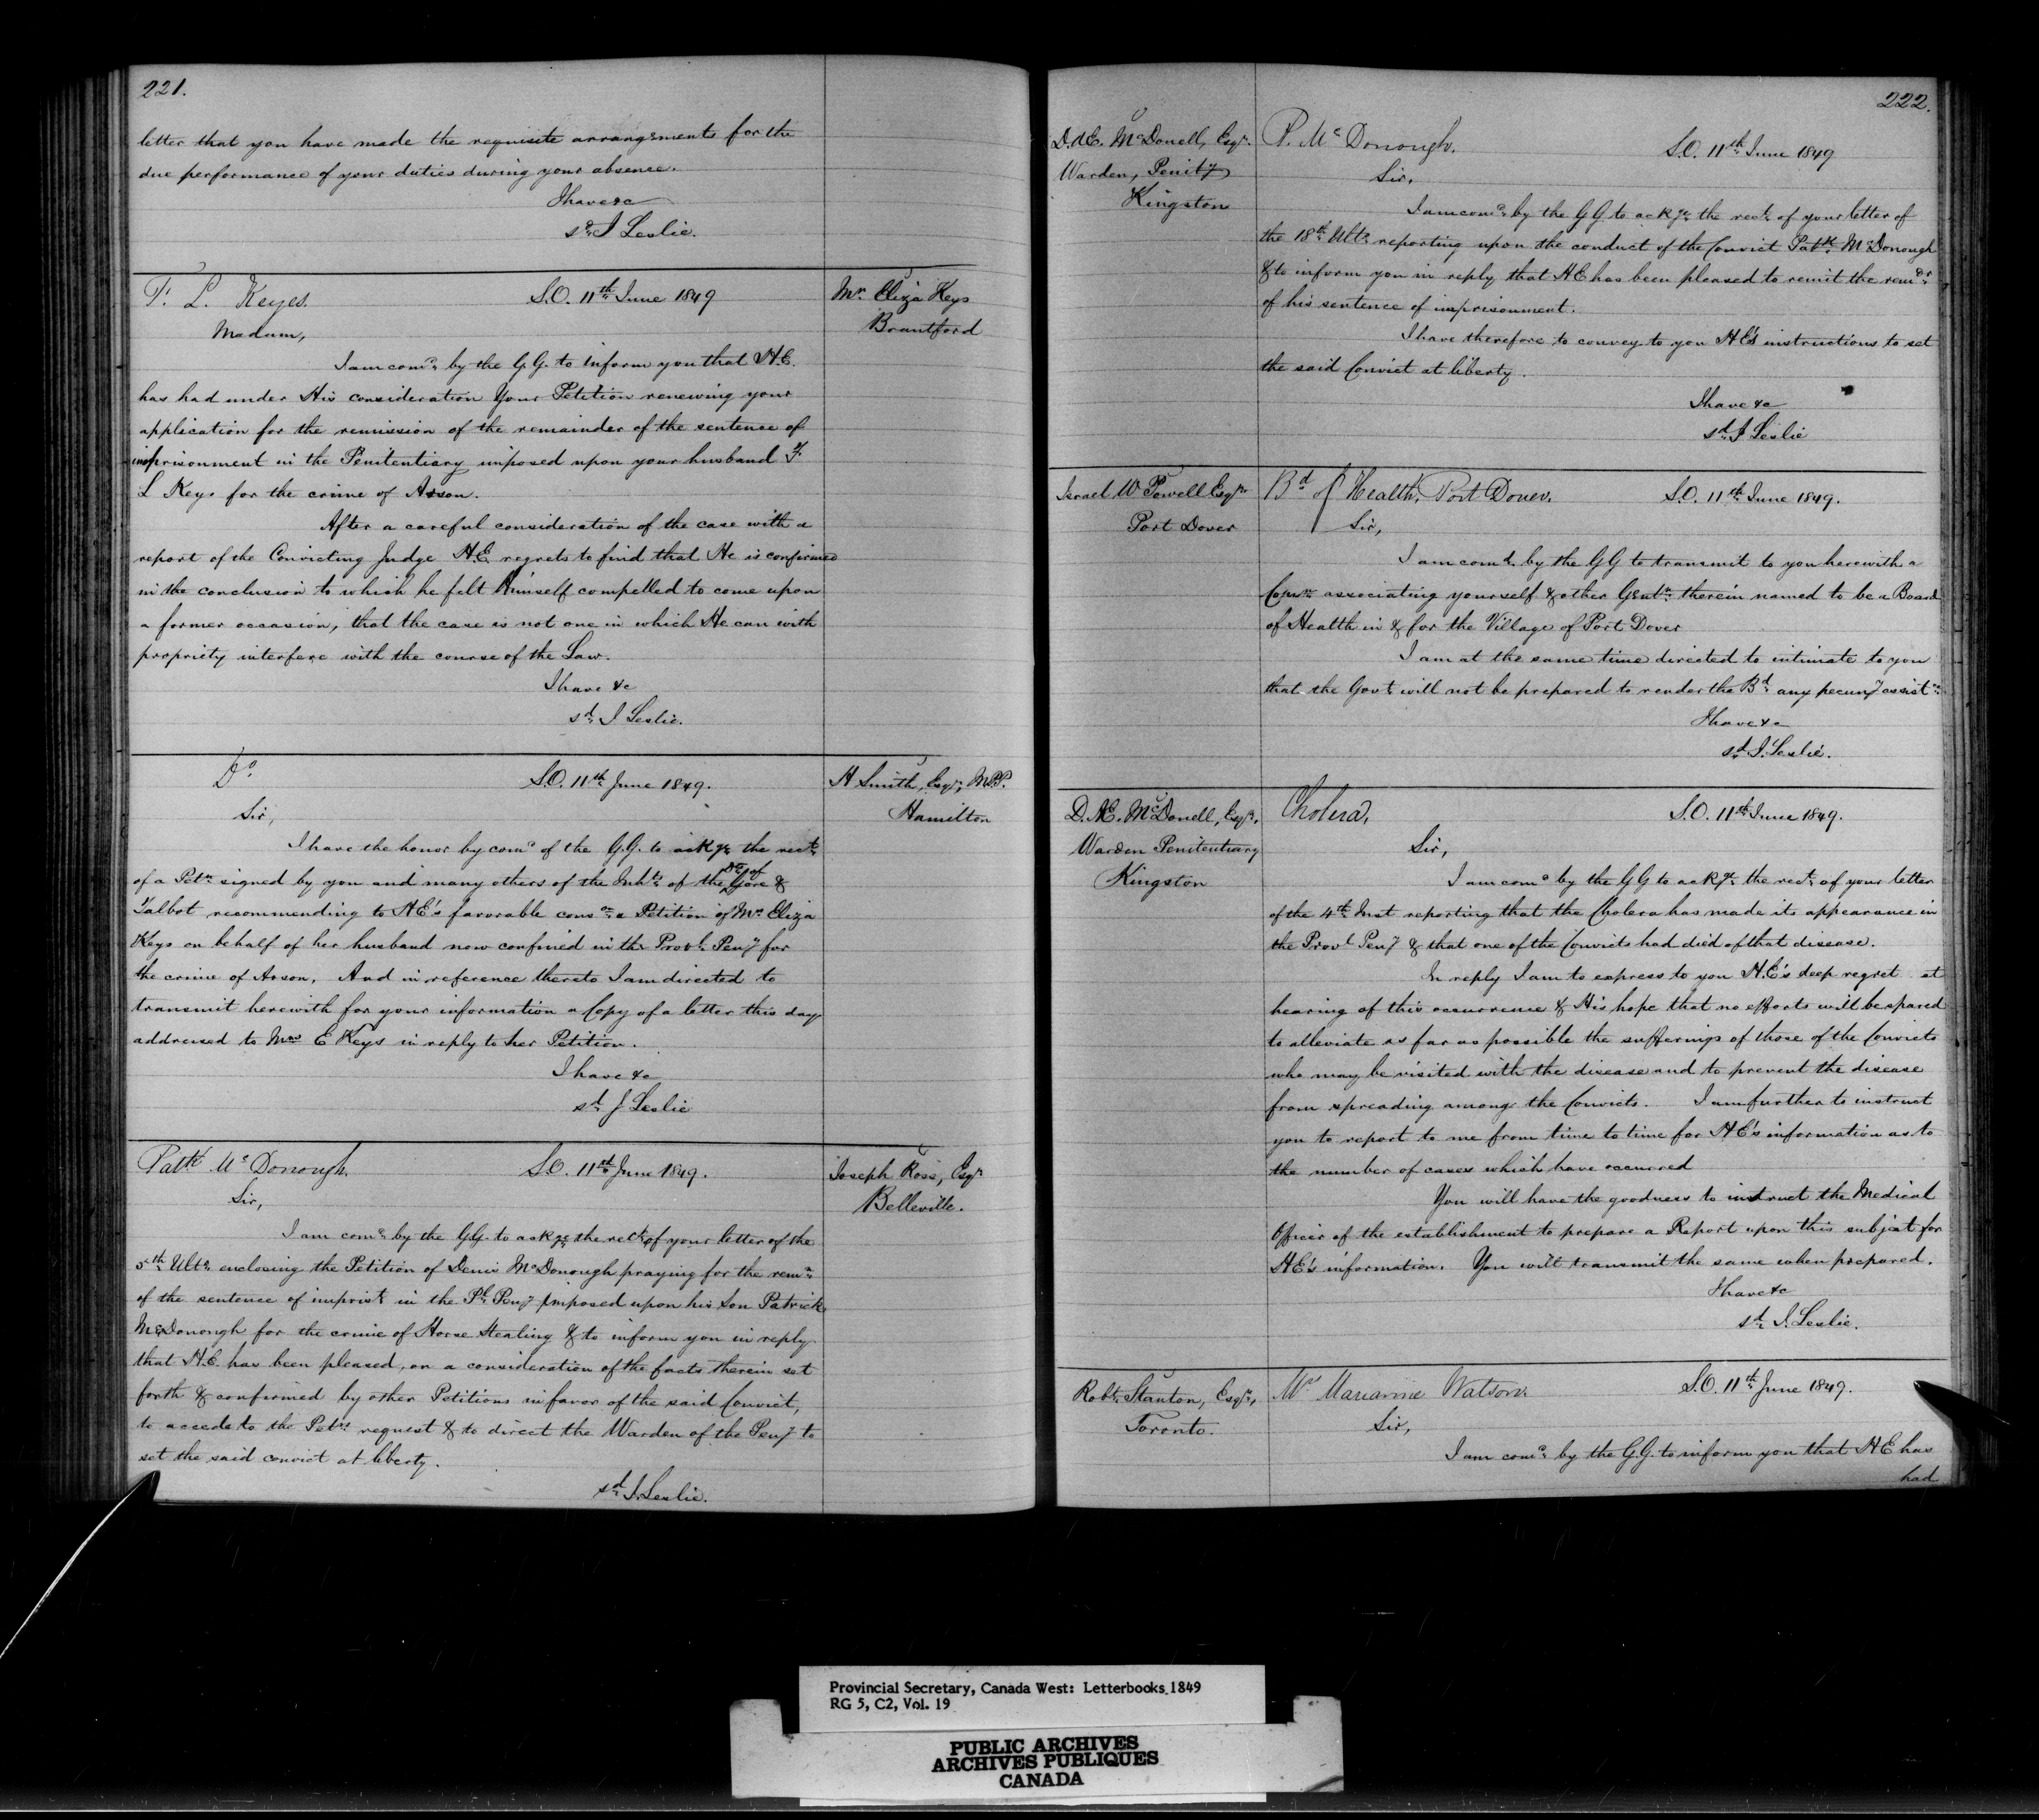 221.
letter that you have made the requisite arrangements for the
due performance of your duties during your absence.
I have &c
sd. J Leslie.
F. L. Keyes.
S.O. 11th June 1849
Mrs Eliza Keys
Brantford
Madam,
I am comd. by the G.G. to inform you that H.E.
has had under His consideration Your Petition renewing your
application for the remission of the remainder of the sentence of
imprisonment in the Penitentiary imposed upon your husband F.
L Keys for the crime of Arson.
After a careful consideration of the case with a
report of the Convicting Judge H.E. regrets to find that He is confirmed
in the conclusion to which he felt Himself compelled to come upon
a former occasion, that the case is not one in which He can with
propriety interfere with the course of the Law.
I have &c
sd. J Leslie.
Do
S.O. 11th June 1849.
H Smith, Esqr, M.P.P.
Hamilton
Sir,
I have the honor by comd of the G.G. to ackge the rect.
of a Petn signed by you and many others of the Inhts. of the Dts of Gore &
Talbot recommending to HE's favorable conson a Petition of Mrs Eliza
Keys on behalf of her husband now confined in the Provl. Peny for
the crime of Arson. And in reference thereto I am directed to
transmit herewith for your information a Copy of a letter this day
addressed to Mrs E Keys in reply to her Petition.
I have &c
sd. J Leslie
Patk McDonough.
S.O. 11th June 1849.
Joseph Ross, Esqr
Belleville.
Sir,
I am comd. by the GG. to ackge the rect. of your letter of the
5th Ulto. enclosing the Petition of Denis McDonough praying for the remn.
of the sentence of imprist. in the Pl. Peny imposed upon his Son Patrick
McDonough for the crime of Horse Stealing & to inform you in reply
that H.E. has been pleased, on a consideration of the facts therein set
forth & confirmed by other Petitions in favor of the said Convict,
to accede to the Petrs request & to direct the Warden of the Peny to
set the said convict at liberty.
sd. J. Leslie.
222.
D. AE. McDonell, Esqr.
Warden, Penity
Kingston
P. McDonough.
S.O. 11th June 1849
Sir,
I am comd. by the GG to ackge the rect. of your letter of
the 18th Ulto. reporting upon the conduct of the Convict Patk. McDonough
& to inform you in reply that HE has been pleased to remit the remdr
of his sentence of imprisonment.
I have therefore to convey to you HE's instructions to set
the said Convict at liberty.
I have &c
sd. J Leslie
Israel W Powell Esqre
Port Dover
Bd of Health, Port Dover.
S.O. 11th June 1849.
Sir,
I am comd. by the GG to transmit to you herewith a
Comn. associating yourself & other Gentn. therein named to be a Board
of Health in & for the Village of Port Dover
I am at the same time directed to intimate to you
that the Govt. will not be prepared to render the Bd. any pecuny assistce.
I have &c
sd. J. Leslie.
D. AE. McDonell, Esqr.
Warden Penitentiary
Kingston
Cholera.
S.O. 11th June 1849.
Sir,
I am comd by the GG to ackge. the rect. of your letter
of the 4th Inst reporting that the Cholera has made its appearance in
the Provl Peny & that one of the Convicts had died of that disease.
In reply I am to express to you H.E's deep regret at
hearing of this occurrence & His hope that no efforts will be spared
to alleviate as far as possible the sufferings of those of the Convicts
who may be visited with the disease and to prevent the disease
from spreading among the Convicts. I am further to instruct
you to report to me from time to time for HE's information as to
the number of cases which have occurred
You will have the goodness to instruct the Medical
Officer of the establishment to prepare a Report upon this subject for
HE's information. You will transmit the same when prepared.
I have &c
sd. J. Leslie.
Robt. Stanton, Esqr.
Toronto.
Mrs Marianne Watson.
S.O. 11th June 1849.
Sir,
I am comd. by the G.G. to inform you that HE has
had
Provincial Secretary, Canada West: Letterbooks 1849
RG 5, C2, Vol. 19
PUBLIC ARCHIVES
ARCHIVES PUBLIQUES
CANADA